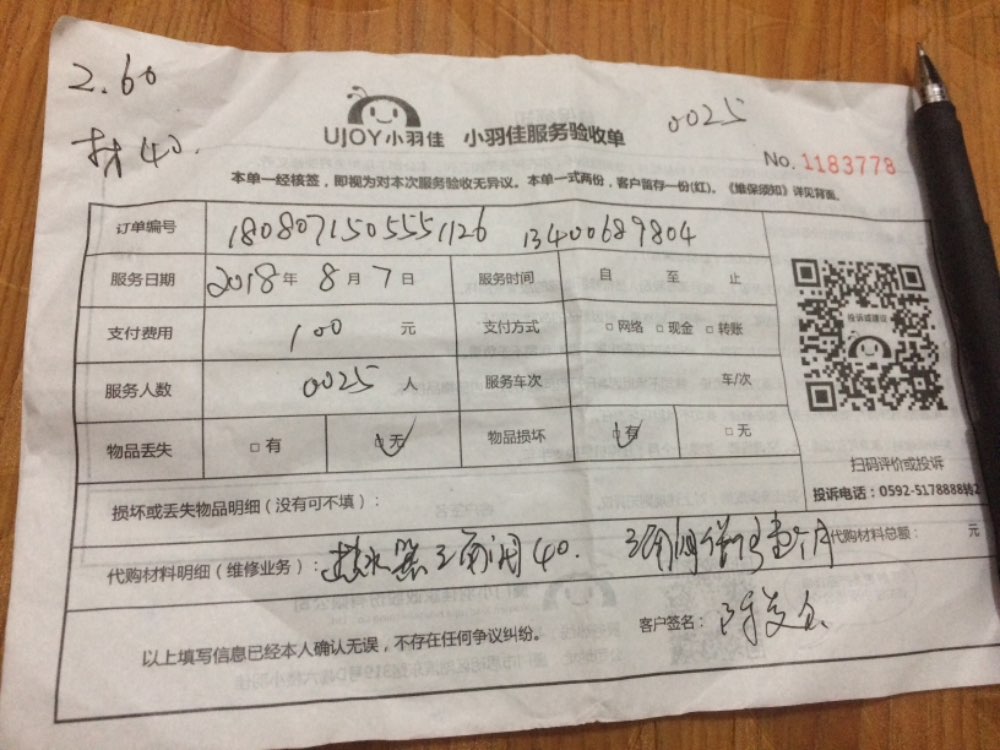 2.60
材40.
UJOY小羽佳 小羽佳服务验收单 0025
No. 1183778
本单一经核签，即视为对本次服务验收无异议。本单一式两份，客户留存一份(红)。《维保须知》详见背面。
订单编号 180807150555 1126 13400689804
服务日期 2018年 8月 7日 服务时间 自 至 止
支付费用 100 元 支付方式 □网络 □现金 □转账
投诉或建议
服务人数 0025 人 服务车次 车/次
物品丢失 □有 □无 物品损坏 □有 □无
扫码评价或投诉
投诉电话：0592-5178888
损坏或丢失物品明细（没有可不填）：
代购材料明细（维修业务）：热水器三角阀40. 三角阀 个月 代购材料总额： 元
客户签名：
以上填写信息已经本人确认无误，不存在任何争议纠纷。